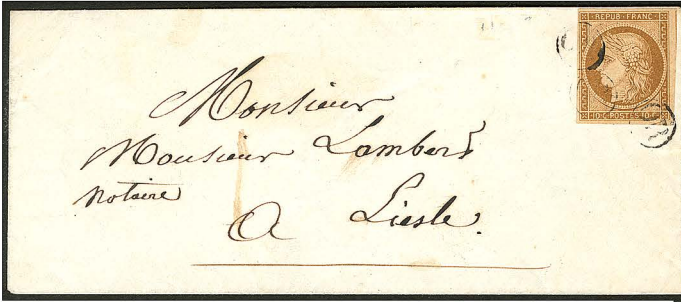 REPUB. FRANC.
10.c. POSTES 10.c.
Monsieur
Monsieur Lambert
Notaire
A Liesle.